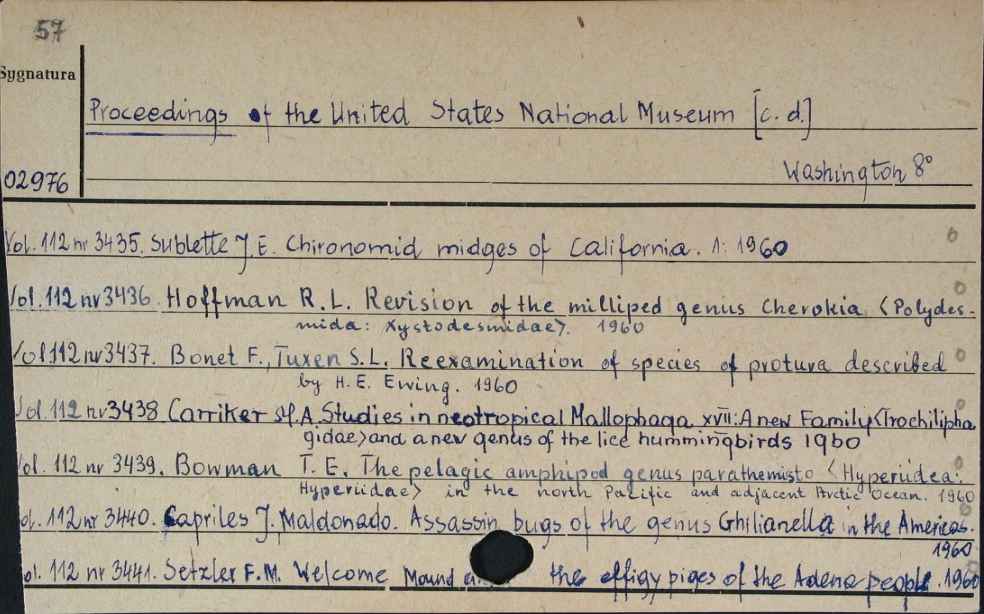 57
Sygnatura
Proceedings of the United States National Museum [c. d.]
02976
Washington 8°
Vol. 112 nr 3435. Sublette J. E. Chironomid midges of California. 1: 1960
Vol. 112 nr 3436. Hoffman R. L. Revision of the milliped genus Cherokia <Polydes-
mida: Xystodesmidae>. 1960
Vol 112 nr 3437. Bonet F., Tuxen S. L. Reexamination of species of protura described
by H. E. Ewing. 1960
Vol. 112 nr 3438 Carriker M. A. Studies in neotropical Mallophaga XVII: A new Family <Trochilipha
gidae> and a new genus of the lice hummingbirds 1960
Vol. 112 nr 3439. Bowman T. E. The pelagic amphipod genus parathemisto <Hyperiidea:
Hyperiidae> in the north Pacific and adjacent Arctic Ocean. 1960
ol. 112 nr 3440. Capriles J. Maldonado. Assassin bugs of the genus Ghilianella in the Americas.
1960
ol. 112 nr 3441. Setzler F. M. Welcome Mound the effigy pipes of the Adena people. 1960